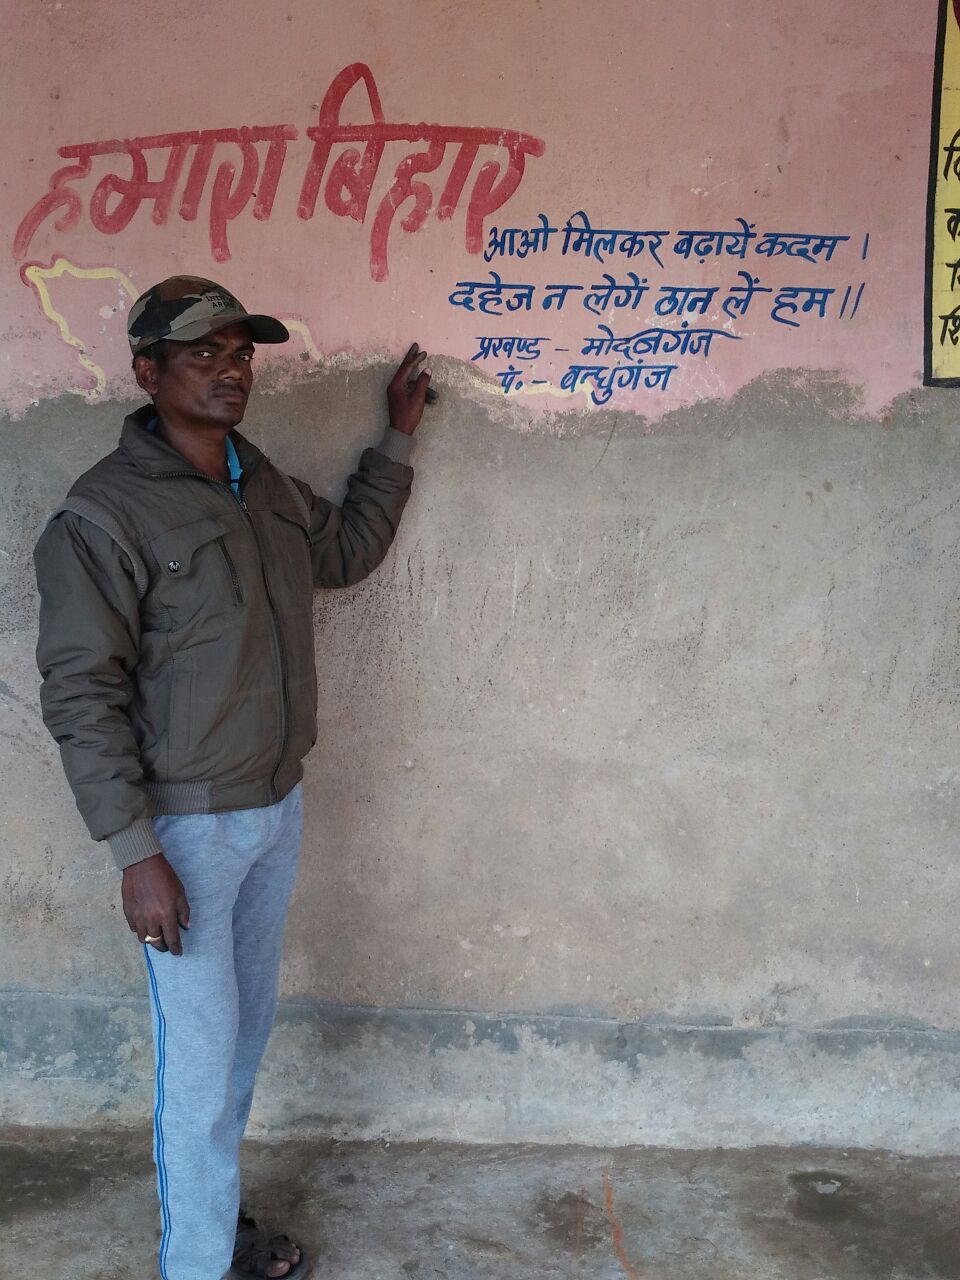 हमारा बिहार
आओ मिलकर बढ़ायें कदम ।
दहेज न लेगें ठान लें हम ॥
प्रखण्ड - मोदनगंज
पं. - बन्धुगंज
INDIAN
ARMY